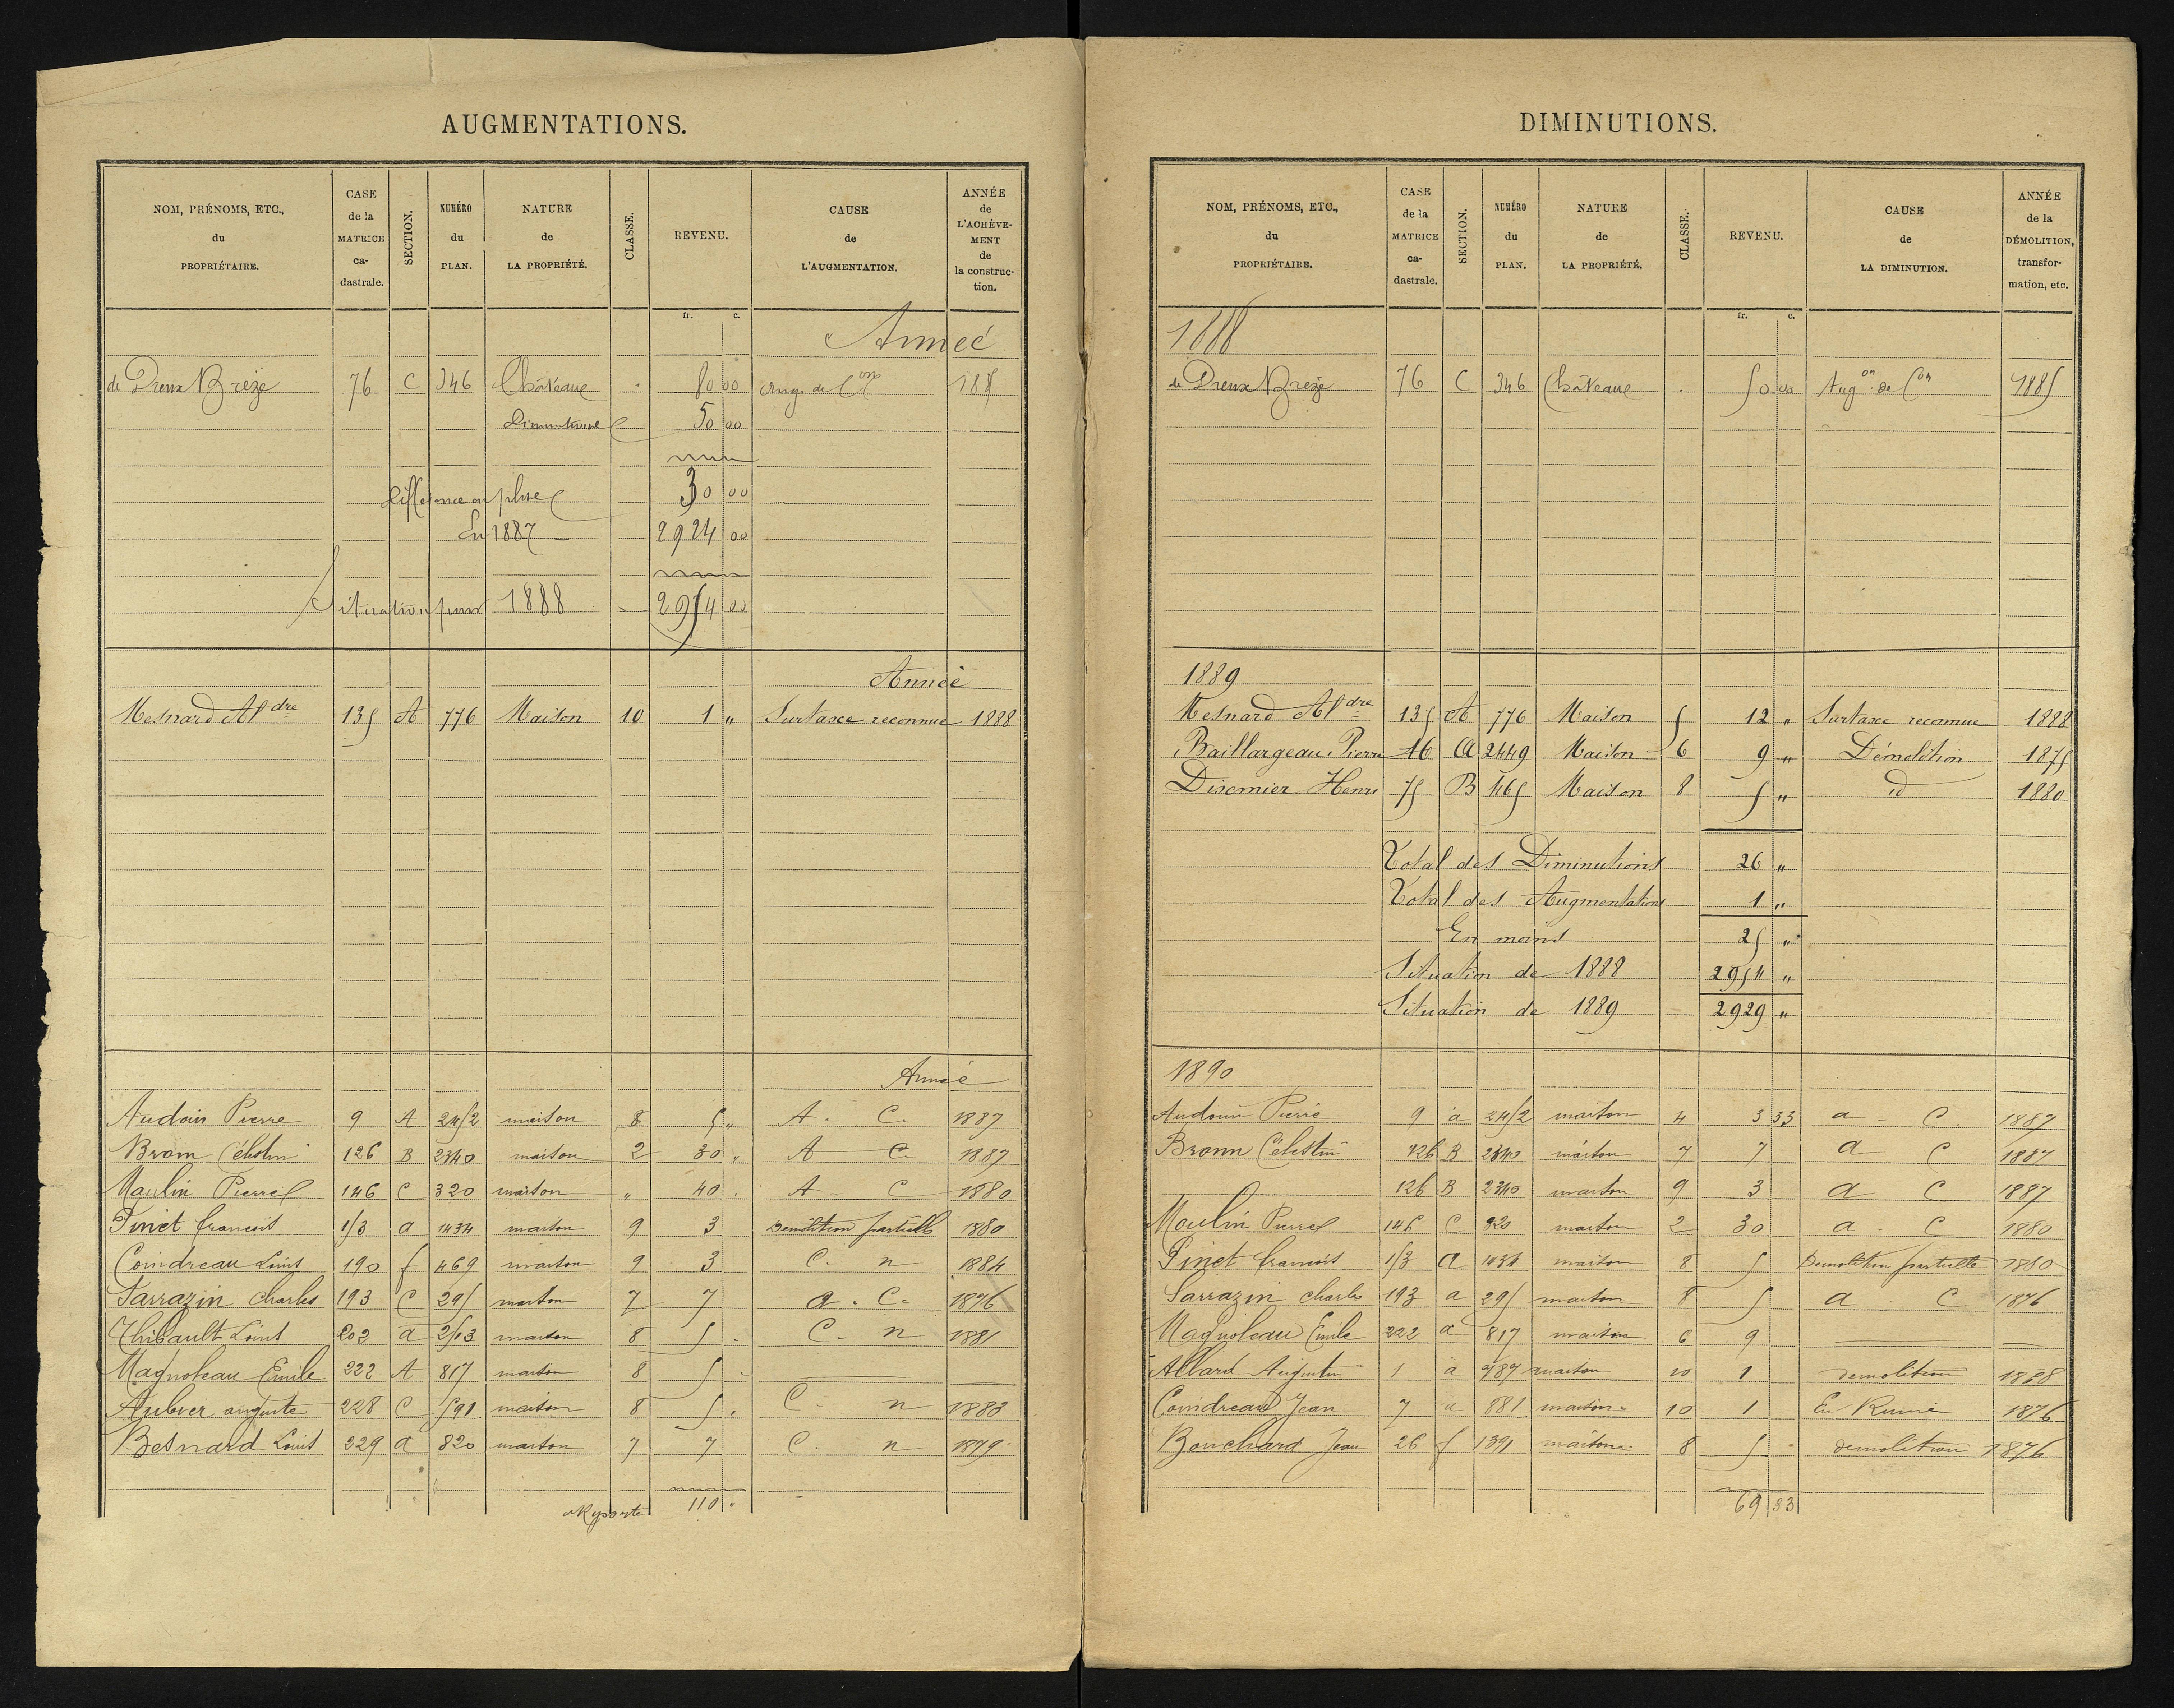 AUGMENTATIONS.
NOM, PRÉNOMS, ETC., du PROPRIÉTAIRE. CASE de la MATRICE ca-dastrale. SECTION. NUMÉRO du PLAN. NATURE de LA PROPRIÉTÉ. CLASSE. REVENU. CAUSE de L'AUGMENTATION. ANNÉE de L'ACHÈVE-MENT de la construc-tion.
fr. c.
Année
de Dreux Brézé 76 C 346 Château . 80 00 Aug. de Con 1885
Diminution 50 00
Différence en plus 30 00
En 1887 2924 00
Situation pour 1888 2954 00
Année
Mesnard Aldre 135 A 776 Maison 10 1 " Surtaxe reconnue 1888
Année
Audoin Pierre 9 A 2452 maison 8 5 " A. C. 1887
Bronn Célestin 126 B 2340 maison 2 30 " A C. 1887
Moulin Pierre 146 C 320 maison " 40 . A C 1880
Pinet francois 153 a 1434 maison 9 3 Demolition partielle 1880
Coindreau Louis 190 f 469 maison 9 3 C. n 1884
Sarrazin Charles 193 C 295 maison 7 7 a. C. 1876
Thibault Louis 202 a 2513 maison 8 5 . C. n 1881
Magnoleau Emile 222 A 817 maison 8 5 .
auguste 228 C 591 maison 8 5 . C. n 1883
Besnard Louis 229 a 820 maison 7 7 C. n 1879
A Reporte 110 "
DIMINUTIONS.
NOM, PRÉNOMS, ETC., du PROPRIÉTAIRE. CASE de la MATRICE ca-dastrale. SECTION. NUMÉRO du PLAN. NATURE de LA PROPRIÉTÉ. CLASSE. REVENU. CAUSE de LA DIMINUTION. ANNÉE de la DÉMOLITION, transfor-mation, etc.
fr. c.
1888
de Dreux Brézé 76 C 346 Château . 50 00 Augon de Con 1885
1889
Mesnard Aldre 135 A 776 Maison 5 12 " Surtaxe reconnue 1888
Baillargeau Pierre 16 A 2449 Maison 6 9 " Démolition 1875
Henri 75 B 465 Maison 8 5 " id 1880
Total des Diminutions 26 "
Total des Augmentations 1 "
En moins 25 "
Situation de 1888 2954 "
Situation de 1889 2929 "
1890
Audouin Pierre 9 a 2452 maison 4 3 33 a C. 1887
Bronn Célestin 126 B 2340 maison 7 7 a C 1887
126 B 2340 maison 9 3 a C 1887
Moulin Pierre 146 C 320 maison 2 30 a. C 1880
Pinet francois 153 a 1434 maison 8 5 Demolition partielle 1880
Sarrazin Charles 193 a 295 maison 8 5 a C 1876
Magnoleau Emile 222 a 817 maison 6 9
Allard Augustin 1 a 787 maison 10 1 demolition 1888
Coindreau Jean 7 a 881 maison 10 1 En Ruine 1876
Bouchard Jean 26 f 1391 maison 8 5 demolition 1876
69 33